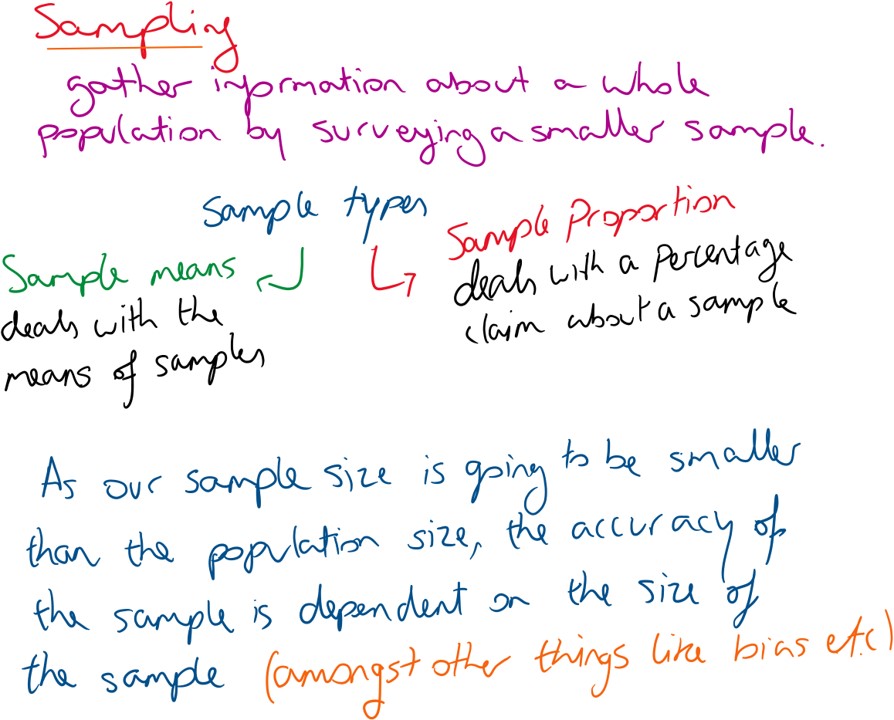 Sampling
gather information about a whole
population by surveying a smaller sample.
Sample types
Sample means
deals with the
means of samples
Sample Proportion
deals with a percentage
claim about a sample
As our sample size is going to be smaller
than the population size, the accuracy of
the sample is dependent on the size of
the sample (amongst other things like bias etc)